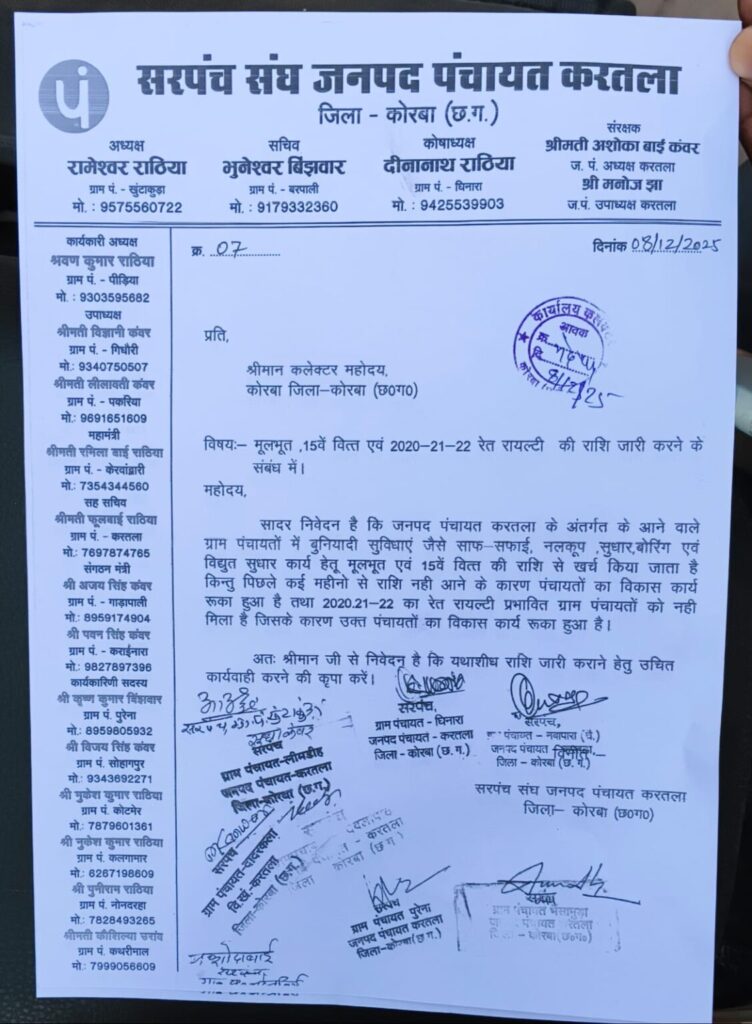 पं
सरपंच संघ जनपद पंचायत करतला
जिला - कोरबा (छ.ग.)
अध्यक्ष
रामेश्वर राठिया
ग्राम पं. - खुंटाकुड़ा
मो. : 9575560722
सचिव
भुनेश्वर बिंझवार
ग्राम पं. - बरपाली
मो. : 9179332360
कोषाध्यक्ष
दीनानाथ राठिया
ग्राम पं. - घिनारा
मो. : 9425539903
संरक्षक
श्रीमती अशोका बाई कंवर
ज. पं. अध्यक्ष करतला
श्री मनोज झा
ज.पं. उपाध्यक्ष करतला
कार्यकारी अध्यक्ष
श्रवण कुमार राठिया
ग्राम पं. - पीड़िया
मो. : 9303595682
उपाध्यक्ष
श्रीमती विज्ञानी कंवर
ग्राम पं. - गिधौरी
मो.: 9340750507
श्रीमती लीलावती कंवर
ग्राम पं. - पकरिया
मो.: 9691651609
महामंत्री
श्रीमती रमिला बाई राठिया
ग्राम पं. - केरवांद्वारी
मो.: 7354344560
सह सचिव
श्रीमती फूलबाई राठिया
ग्राम पं. - करतला
मो.: 7697874765
संगठन मंत्री
श्री अजय सिंह कंवर
ग्राम पं. - गाड़ापाली
मो.: 8959174904
श्री पवन सिंह कंवर
ग्राम पं. - कराईनारा
मो.: 9827897396
कार्यकारिणी सदस्य
श्री कृष्ण कुमार बिंझवार
ग्राम पं. पुरेना
मो.: 8959805932
श्री विजय सिंह कंवर
ग्राम पं. सोहागपुर
मो.: 9343692271
श्री मुकेश कुमार राठिया
ग्राम पं. कोटमेर
मो.: 7879601361
श्री मुकेश कुमार राठिया
ग्राम पं. कलगामार
मो.: 6267198609
श्री पुनीराम राठिया
ग्राम पं. नोनदरहा
मो.: 7828493265
श्रीमती कौशिल्या उरांव
ग्राम पं. कथरीमाल
मो.: 7999056609
क्र. 07
दिनांक 08/12/2025
कार्यालय कलेक्टर
आवक
क्र.
दि. 8/12/25
कोरबा
प्रति,
श्रीमान कलेक्टर महोदय,
कोरबा जिला–कोरबा (छ०ग०)
विषयः– मूलभूत ,15वें वित्त एवं 2020-21-22 रेत रायल्टी की राशि जारी करने के
संबंध में।
महोदय,
सादर निवेदन है कि जनपद पंचायत करतला के अंतर्गत के आने वाले
ग्राम पंचायतों में बुनियादी सुविधाएं जैसे साफ-सफाई, नलकूप ,सुधार,बोरिंग एवं
विद्युत सुधार कार्य हेतू मूलभूत एवं 15वें वित्त की राशि से खर्च किया जाता है
किन्तु पिछले कई महीनो से राशि नही आने के कारण पंचायतों का विकास कार्य
रूका हुआ है तथा 2020.21–22 का रेत रायल्टी प्रभावित ग्राम पंचायतों को नही
मिला है जिसके कारण उक्त पंचायतों का विकास कार्य रूका हुआ है।
अतः श्रीमान जी से निवेदन है कि यथाशीध राशि जारी कराने हेतु उचित
कार्यवाही करने की कृपा करें।
सरपंच,
ग्राम पंचायत - घिनारा
जनपद पंचायत - करतला
जिला - कोरबा (छ. ग.)
सरपंच,
ग्राम पंचायत - नवापारा (चै.)
जनपद पंचायत
जिला - कोरबा (छ.ग.)
विनीत–
सरपंच संघ जनपद पंचायत करतला
जिला– कोरबा (छ०ग०)
सरपंच
ग्राम पंचायत-लीमडीह
जनपद पंचायत-करतला
जिला-कोरबा (छ.ग.)
सरपंच
ग्राम पंचायत-दादरकला
वि.खं. करतला
जिला-कोरबा (छ.ग.)
करतला
कोरबा (छ.ग.)
सरपंच
ग्राम पंचायत पुरेना
जनपद पंचायत करतला
जिला-कोरबा (छ.ग.)
सरपंच
ग्राम पंचायत भैसामुड़ा
करतला
कोरबा (छ०ग०)